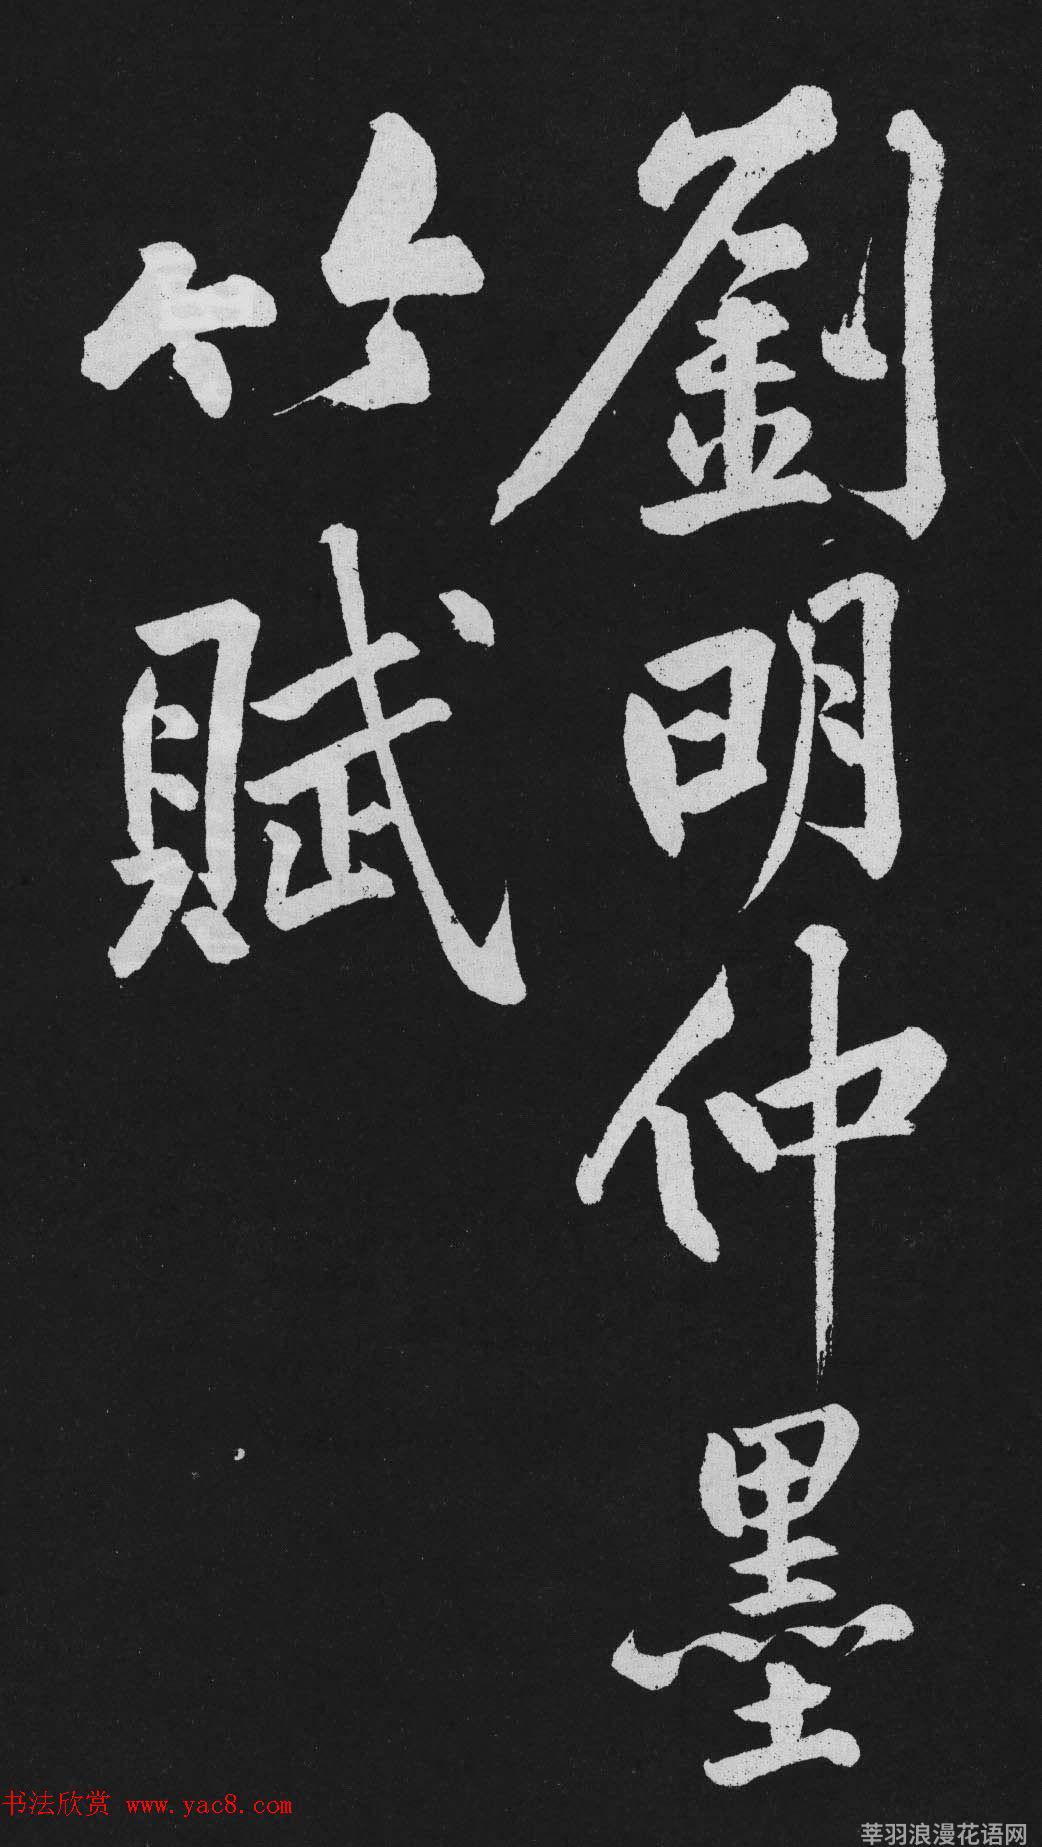 劉明仲墨
竹賦
书法欣赏 www.yac8.com
莘羽浪漫花语网